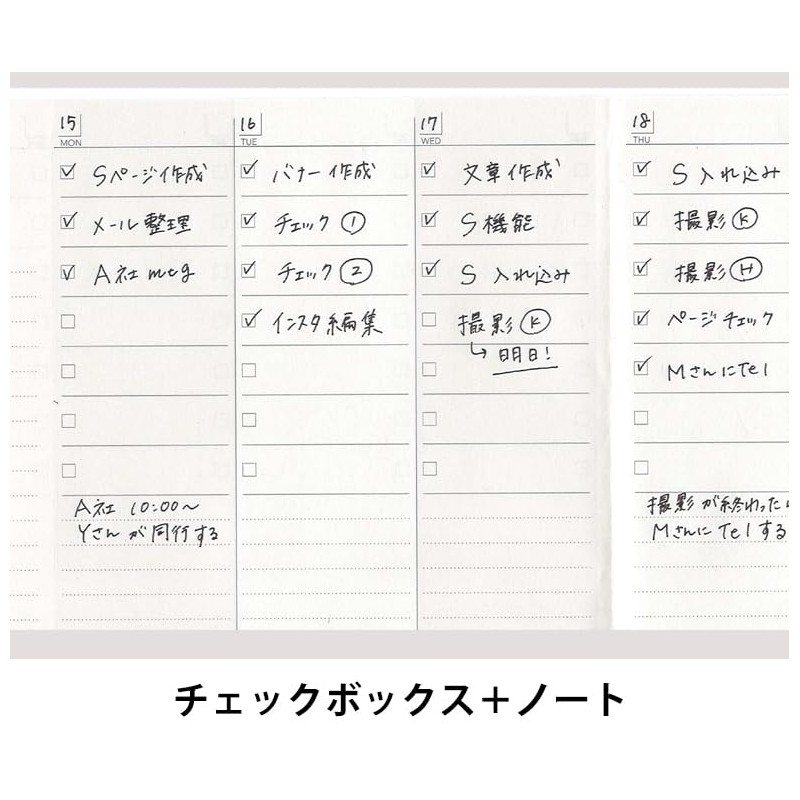 15
MON
Sページ作成
メール整理
A社 mtg
A社 10:00〜
Yさんが同行する
16
TUE
バナー作成
チェック①
チェック②
インスタ編集
17
WED
文章作成
S機能
S 入れ込み
撮影Ⓚ
↳明日!
18
THU
S 入れ込み
撮影Ⓚ
撮影Ⓗ
ページチェック
MさんにTel
撮影が終わった
MさんにTelする
チェックボックス+ノート